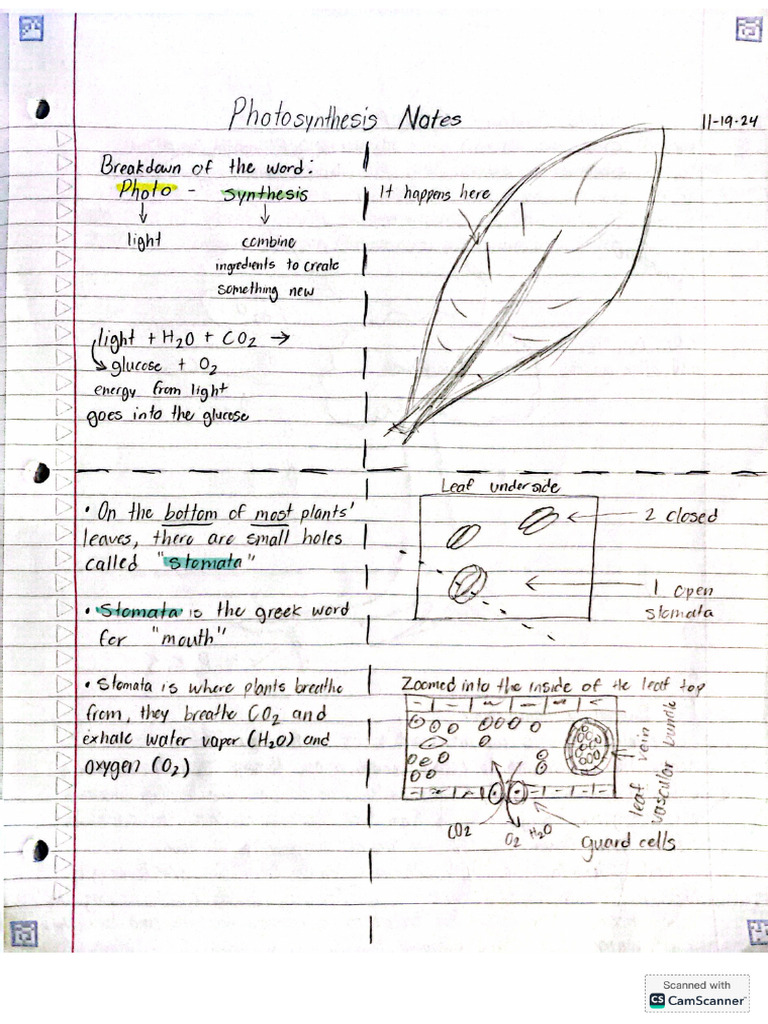 Photosynthesis Notes
11-19-24
Breakdown of the word:
Photo - synthesis
↓ ↓
light combine
ingredients to create
something new
light + H2O + CO2 →
glucose + O2
energy from light
goes into the glucose
It happens here
• On the bottom of most plants'
leaves, there are small holes
called "stomata"
• Stomata is the greek word
for "mouth"
• Stomata is where plants breathe
from, they breathe CO2 and
exhale water vapor (H2O) and
oxygen (O2)
Leaf underside
2 closed
1 open
stomata
Zoomed into the inside of the leaf top
leaf vein
vascular bundle
CO2
O2 H2O
guard cells
Scanned with
CS CamScanner